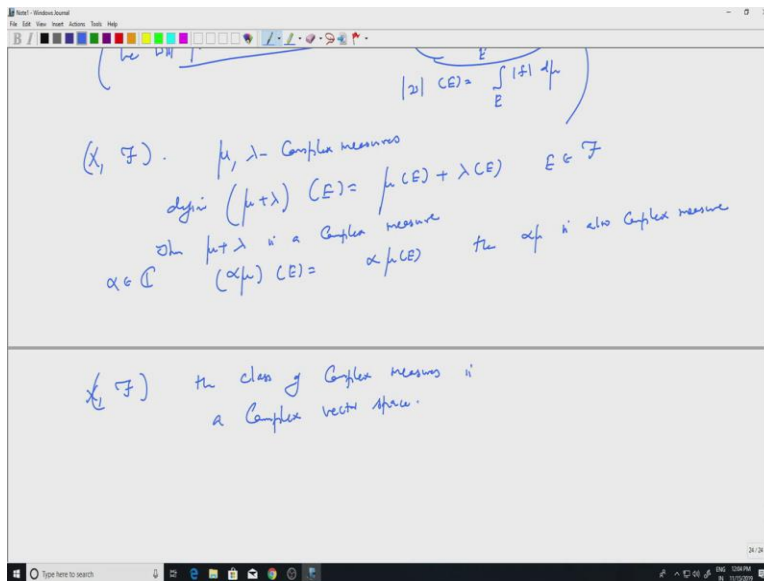 Note1 - Windows Journal
File Edit View Insert Actions Tools Help
|ν| (E) = ∫_E |f| dμ
(X, F). μ, λ - Complex measures
define (μ+λ) (E) = μ(E) + λ(E) E ∈ F
Then μ+λ is a Complex measure
α ∈ ℂ (αμ) (E) = α μ(E) then αμ is also Complex measure
(X, F) the class of Complex measures is
a Complex vector space.
24 / 24
Type here to search
ENG 12:04 PM
IN 11/15/2019